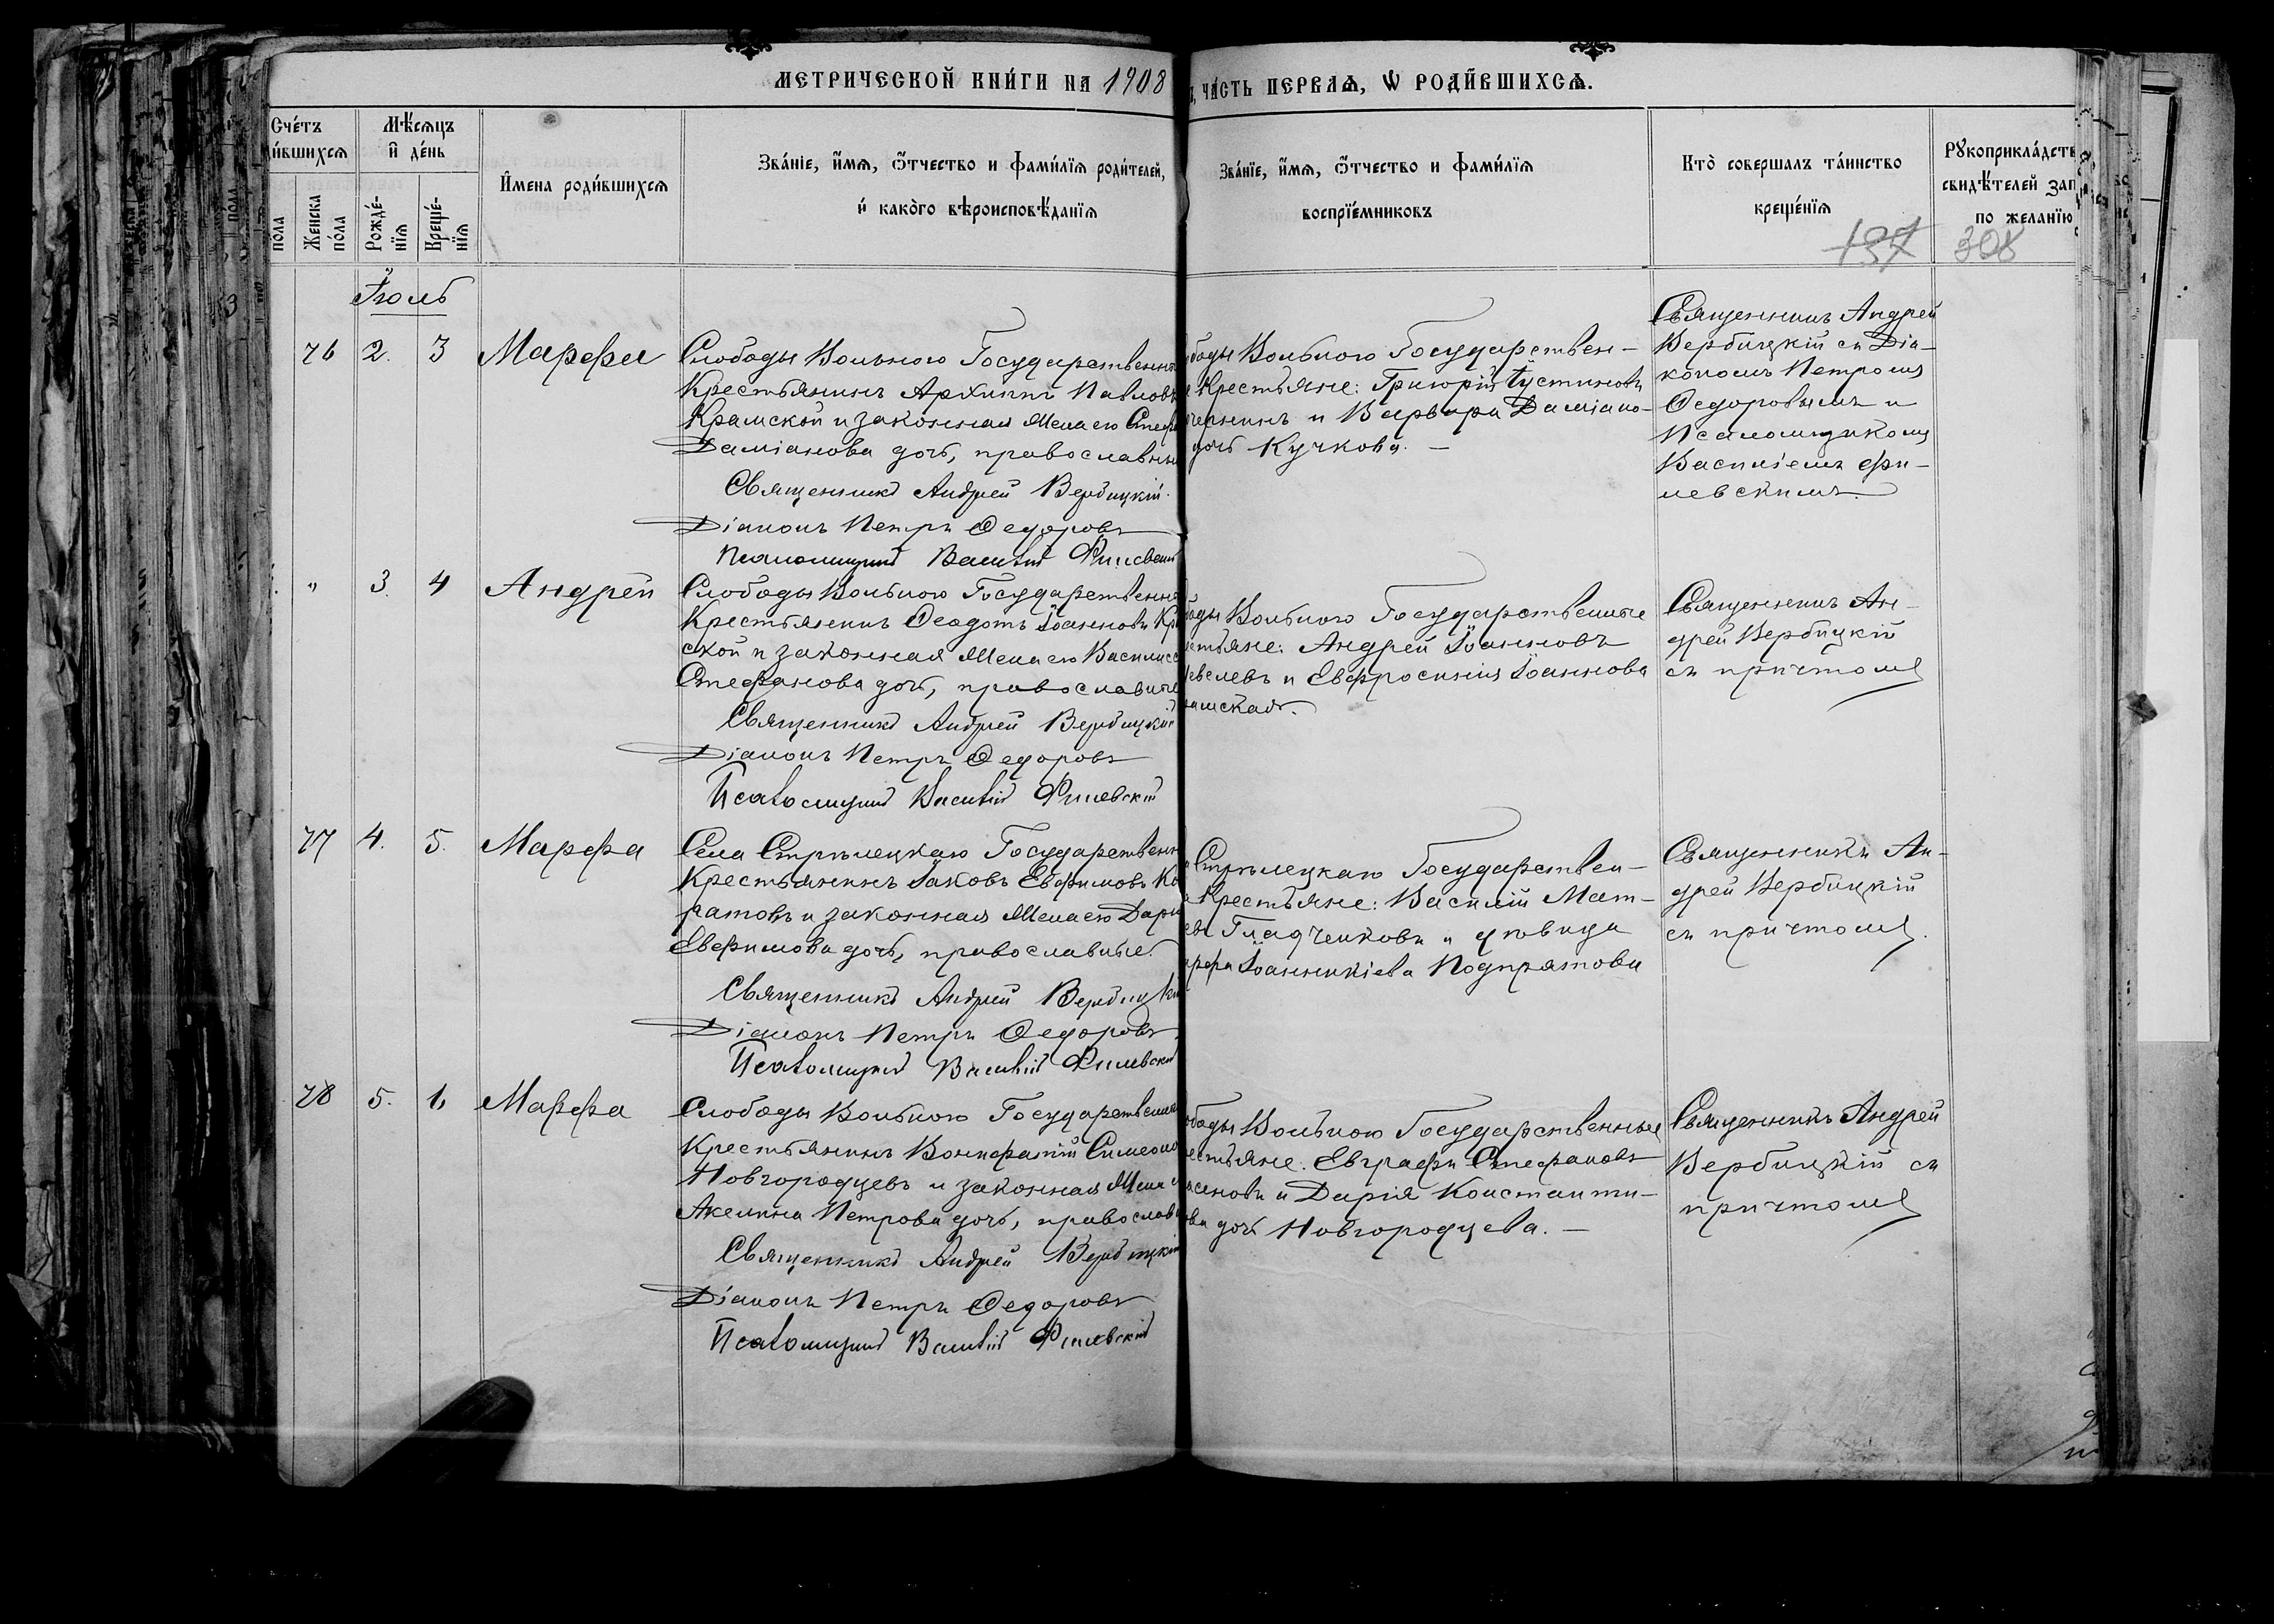 МЕТРИЧЕСКОЙ КНИ́ГИ НА 1908
ЧА́СТЬ ПЕРВАѦ, Ѡ РОДИ́ВШИХСѦ.
Сче́тъ
ди́вшихсѧ
Мѣ́сѧцъ
и де́нь
И҆мена роди́вшихсѧ
Зва́нїе, и҆́мѧ, ѻ҆́тчество и фами́лїѧ роди́телей,
и како́го вѣроисповѣ́данїѧ
Зва́нїе, и҆́мѧ, ѻ҆́тчество и фами́лїѧ
воспрїе́мниковъ
Кто̀ совершалъ та́инство
креще́нїѧ
Рꙋкоприкла́дств
свидѣ́телей зап
по желанїю
пола
Женска
по́ла
Рожде́-
нїѧ
Креще́-
нїѧ
137 308
Іюль
76 2. 3 Марфа
Слободы Вольного Государственн
Крестьянинъ Архипъ Павловъ
Крамской и законная жена его Стеф
Даміанова дочь, православны
Священникъ Андрей Вербицкій.
Діаконъ Петръ Ѳедоровъ
Псаломщикъ Василій Филевскій
боды Вольного Государствен-
Крестьяне: Григорій Іустиновъ
и Варвара Даміано-
дочь Кучкова. —
Священникъ Андрей
Вербицкій съ Діа-
кономъ Петромъ
Ѳедоровымъ и
Псаломщикомъ
Василіемъ Фи-
левскимъ.
" 3. 4 Андрей
Слободы Вольного Государственн
Крестьянинъ Ѳеодотъ Іоанновъ Кра
ской и законная жена его Василисс
Стефанова дочь, православные
Священникъ Андрей Вербицкій
Діаконъ Петръ Ѳедоровъ
Псаломщикъ Василій Филевскій
оды Вольного Государственные
стьяне: Андрей Іоанновъ
и Евфросинія Іоаннова
амская.
Священникъ Ан-
дрей Вербицкій
съ причтомъ
77 4. 5. Марфа
Села Стрѣлецкаго Государственн
Крестьянинъ Іаковъ Евфимовъ Ко
ратовъ и законная жена его Дарі
Евфимова дочь, православные.
Священникъ Андрей Вербицкій
Діаконъ Петръ Ѳедоровъ
Псаломщикъ Василій Филевскій
Стрѣлецкаго Государствен-
Крестьяне: Василій Мат-
евъ Гладченковъ и дѣвица
арфа Іоанникіева Подпрятова
Священникъ Ан-
дрей Вербицкій
съ причтомъ.
78 5. 6 Марфа
Слободы Вольного Государственны
Крестьянинъ Вонифатій Симеоно
Новгородцевъ и законная жена е
Акелина Петрова дочь, православ
Священникъ Андрей Вербицкій
Діаконъ Петръ Ѳедоровъ
Псаломщикъ Василій Филевскій
ободы Вольного Государственные
естьяне: Евграфъ Стефановъ
и Дарія Константи-
ова дочь Новгородцева. —
Священникъ Андрей
Вербицкій съ
причтомъ